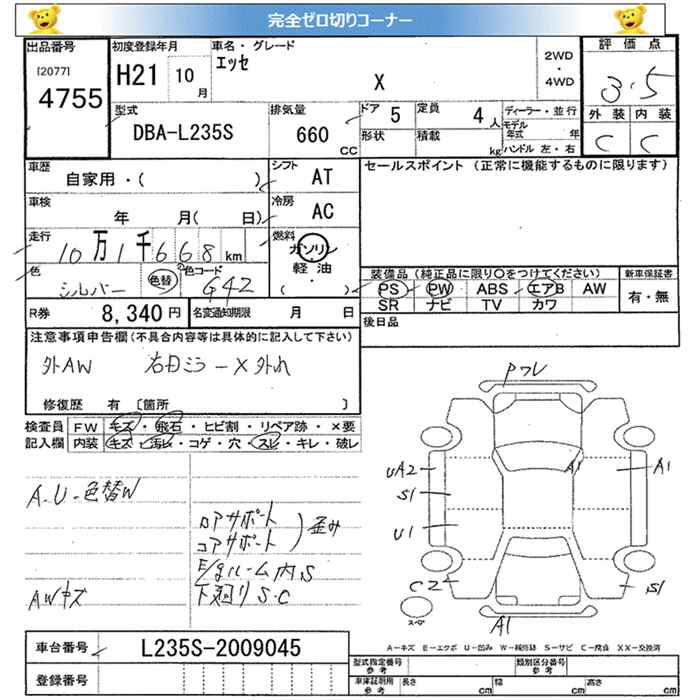 完全ゼロ切りコーナー
出品番号 初度登録年月 車名・グレード 2WD ・ 4WD 評価点
[2077] エッセ
4755 H21 10月 X 3.5
型式 排気量 ドア 5 定員 4人 ディーラー・並行 外装 内装
DBA-L235S 660 CC 形状 積載 kg モデル年式 年 C C
ハンドル 左・右
車歴 シフト AT セールスポイント (正常に機能するものに限ります)
自家用・( )
車検 年 月( 日) 冷房 AC
走行 10万1千668km 燃料 ガソリン・軽油
色 シルバー 色替 色コード G42 ( ) 装備品 (純正品に限り○をつけてください) 新車保証書
PS PW ABS エアB AW 有・無
R券 8,340円 名変通知期限 月 日 SR ナビ TV カワ
注意事項申告欄(不具合内容等は具体的に記入して下さい) 後日品
外AW 右田ミラーX外れ
修復歴 有 〔箇所 〕
検査員 FW キズ・飛石・ヒビ割・リペア跡・×要
記入欄 内装 キズ・汚レ・コゲ・穴・スレ・キレ・破レ
A.U-色替W
ロアサポート
コアサポート 歪み
E/gルーム内S
AWキズ 下廻りS.C
Pワレ
UA2 A1 A1
S1
U1
C2 S1
スペア A1
A-キズ E-エクボ U-凹み W-補修跡 S-サビ C-腐食 XX-交換済
車台番号 L235S-2009045
登録番号
型式指定番号 参考 類別区分番号 参考
車庫証明用 参考 長さ cm 幅 cm 高さ cm